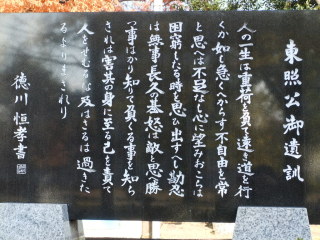 東照公御遺訓
人の一生は重荷を負て遠き道を行
くか如し急くへからす不自由を常
と思は不足なし心に望みおこらは
困窮したる時を思ひ出すへし勘忍
は無事長久の基怒は敵と思へ勝
つ事はかり知りて負くる事を知ら
されは害其の身に至る己を責て
人をせむるな及はさるは過きた
るよりまされり
徳川恒孝書